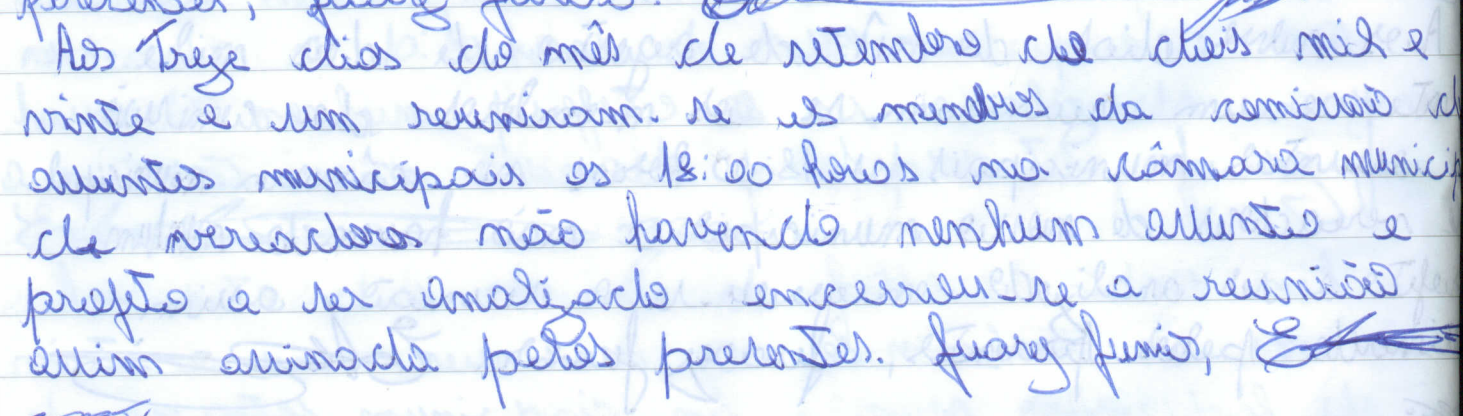 presentes, Juarez Junior.
Aos Treze dias do mês de setembro de dois mil e
vinte e um reuniram. se os membros da comissão d
assuntos municipais as 18:00 horas na câmara municip
de vereadores não havendo nenhum assunto e
projeto a ser analizado encerrou-se a reunião
assim assinada pelos presentes. Juarez Junior,